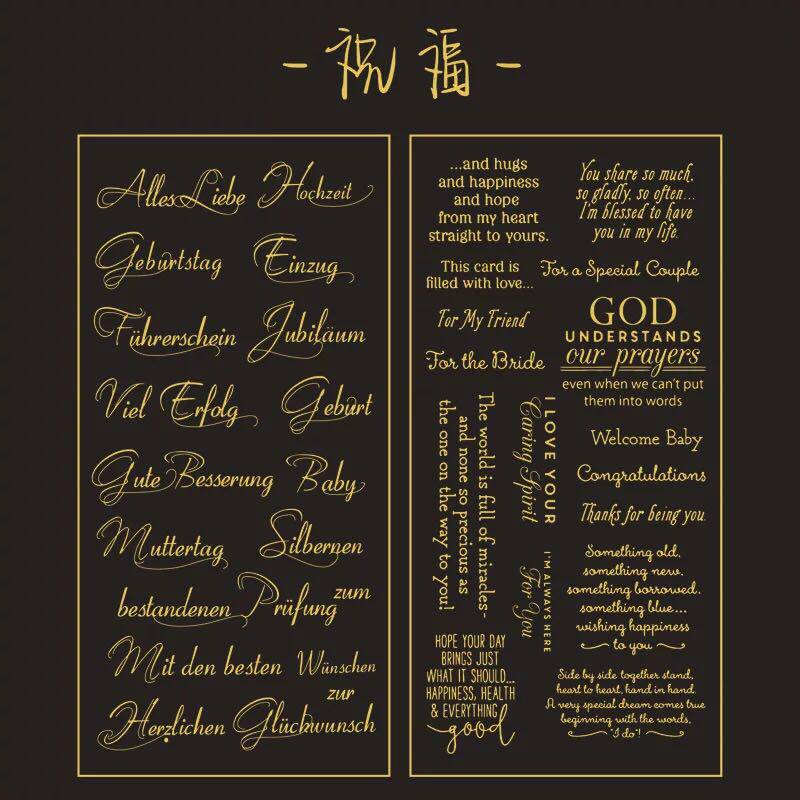 - 祝福 -
Alles Liebe Hochzeit
Geburtstag Einzug
Führerschein Jubiläum
Viel Erfolg Geburt
Gute Besserung Baby
Muttertag Silbernen
zum
bestandenen Prüfung
Mit den besten Wünschen
zur
Herzlichen Glückwunsch
...and hugs
and happiness
and hope
from my heart
straight to yours.
You share so much,
so gladly, so often...
I'm blessed to have
you in my life.
This card is
filled with love...
For a Special Couple
For My Friend
GOD
UNDERSTANDS
our prayers
even when we can't put
them into words
For the Bride
The world is full of miracles-
and none so precious as
the one on the way to you!
I LOVE YOUR
Caring Spirit
I'M ALWAYS HERE
For You
Welcome Baby
Congratulations
Thanks for being you.
Something old,
something new,
something borrowed,
something blue...
wishing happiness
to you
HOPE YOUR DAY
BRINGS JUST
WHAT IT SHOULD...
HAPPINESS, HEALTH
& EVERYTHING
good
Side by side together stand,
heart to heart, hand in hand.
A very special dream comes true
beginning with the words,
"I do"!